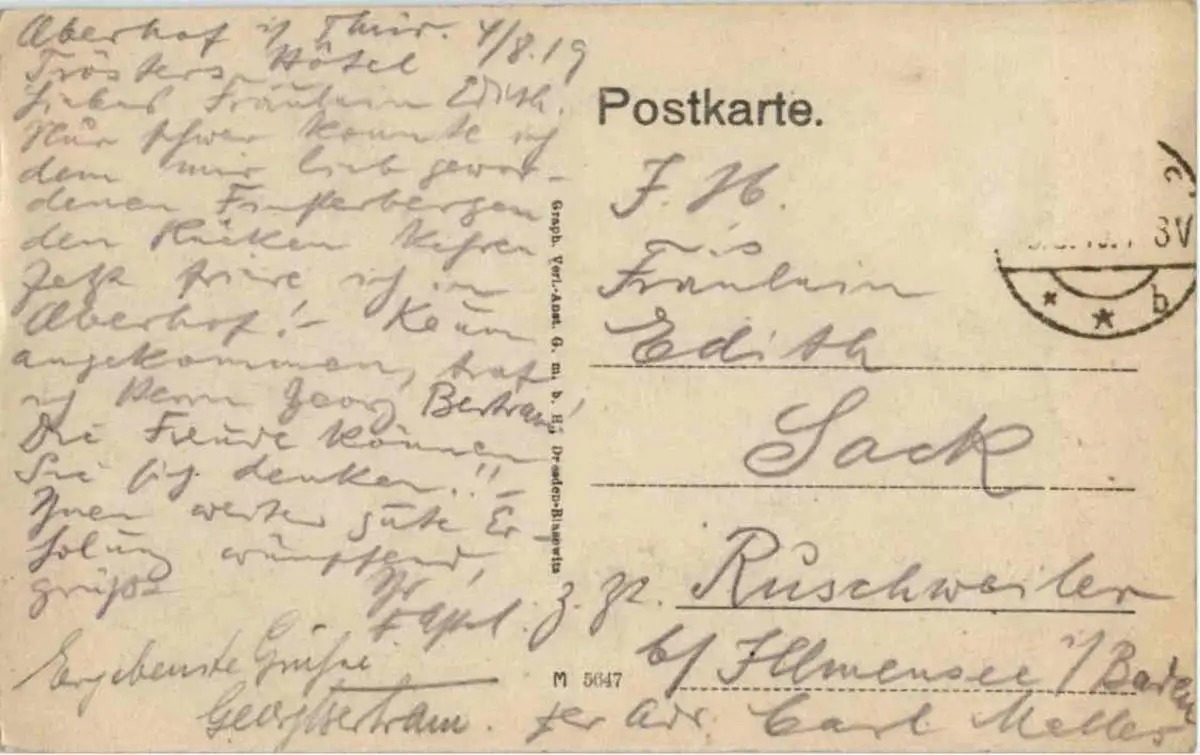 Oberhof i/ Thür. 4/8.19
Trösters Hôtel
Liebes Fräulein Edith.
Nur schwer konnte ich
dem mir lieb gewor-
denen Finsterbergen
den Rücken kehren
Jetzt bin ich in
Oberhof! - Kaum
angekommen, traf
ich Herrn Georg Bertram!
Die Freude können
Sie sich denken!! -
Ihnen weiter gute Er-
holung wünschend,
grüßt
Ihr
Ergebenste Grüße
Georg Bertram.
Postkarte.
Graph. Verl.-Anst. G. m. b. H., Dresden-Blasewitz
M 5647
8V
* * b
c.
Fräulein
Edith
Sack
z. Zt. Ruschweiler
b/ Illmensee i/ Baden
per Adr. Carl